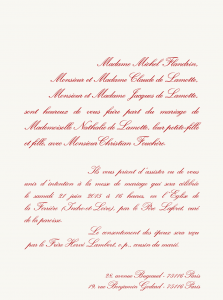 Madame Michel Flandrin,
Monsieur et Madame Claude de Lamotte,
Monsieur et Madame Jacques de Lamotte,
sont heureux de vous faire part du mariage de
Mademoiselle Nathalie de Lamotte, leur petite-fille
et fille, avec Monsieur Christian Touchère.
Ils vous prient d'assister ou de vous
unir d'intention à la messe de mariage qui sera célébrée
le samedi 21 juin 2013 à 16 heures, en l'Eglise de
la Ferrière (Indre-et-Loire), par le Père Lefort, curé
de la paroisse.
Le consentement des époux sera reçu
par le Frère Hervé Lambert, o.p., cousin du marié.
28, avenue Bugeaud - 75116 Paris
19, rue Benjamin Godard - 75116 Paris